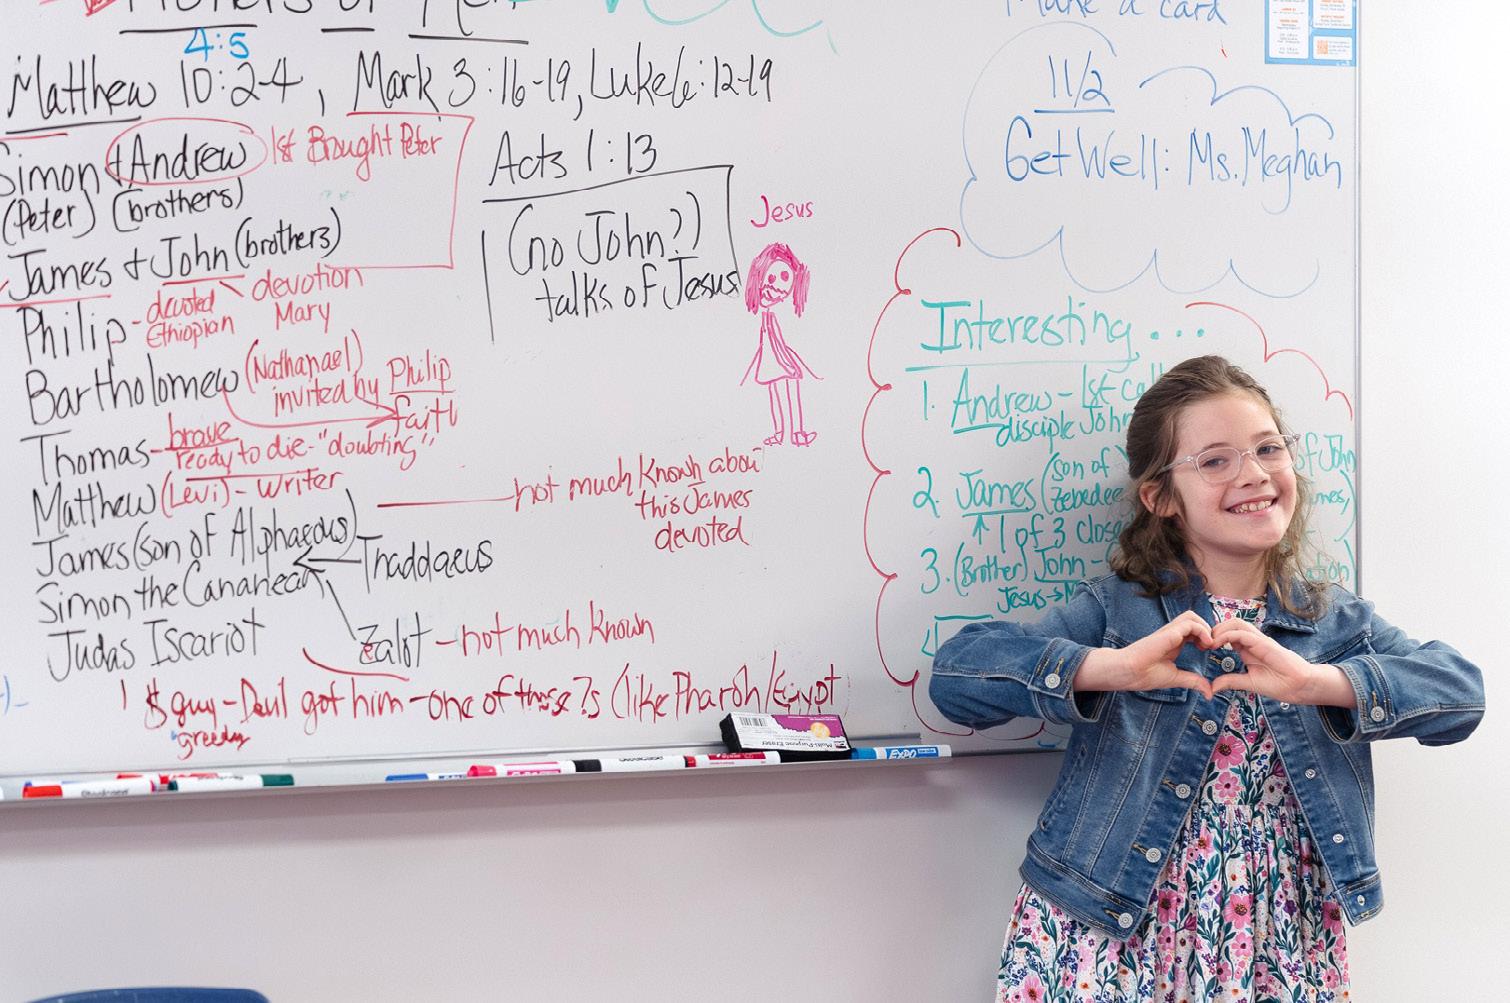 of Men
4:5
Matthew 10:2-4, Mark 3:16-19, Luke 6:12-19
Simon + Andrew 1st Brought Peter
(Peter) (brothers)
James + John (brothers)
devoted devotion
Philip - Ethiopian Mary
Bartholomew (Nathanael)
invited by Philip
faith
Thomas - brave
ready to die - "doubting"
Matthew (Levi) - writer
James (son of Alphaeous)
Thaddaeus
Simon the Cananean
Zealot - not much known
Judas Iscariot
$ guy - Devil got him - one of those ?s (like Pharoh/Egypt
greedy
Acts 1:13
(no John?)
talks of Jesus
Jesus
not much known about
this James
devoted
Make a card
11/2
Get Well: Ms. Meghan
Interesting...
1. Andrew - 1st
disciple John
2. James (son of
Zebedee
1 of 3
of John
3. (Brother) John -
Jesus →
Multi-Purpose Eraser
EXPO